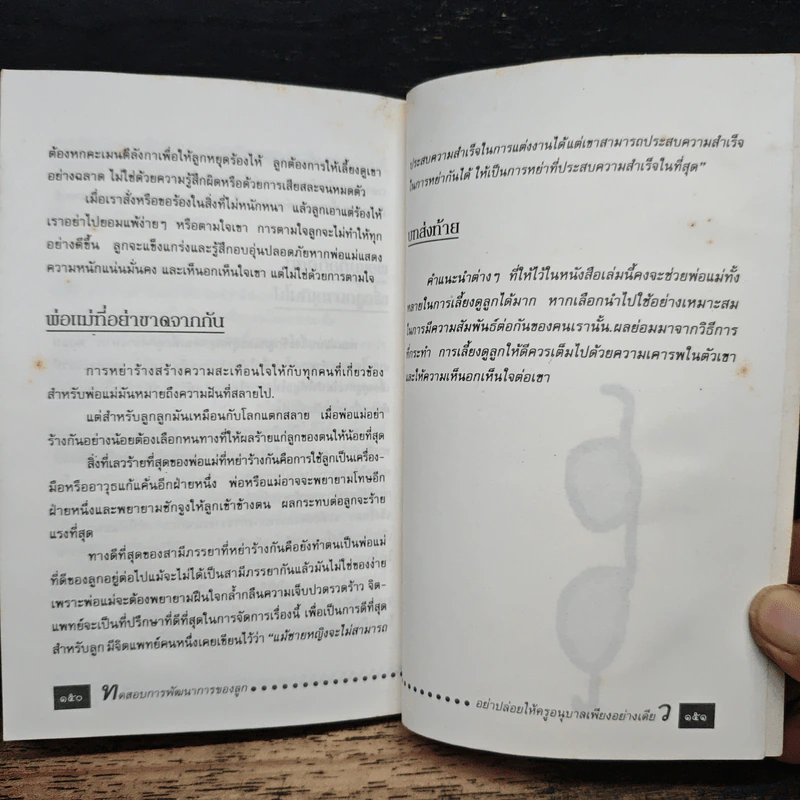 ต้องหกคะเมนตีลังกาเพื่อให้ลูกหยุดร้องไห้ ลูกต้องการให้เลี้ยงดูเขา
อย่างฉลาด ไม่ใช่ด้วยความรู้สึกผิดหรือด้วยการเสียสละจนหมดตัว
เมื่อเราสั่งหรือขอร้องในสิ่งที่ไม่หนักหนา แล้วลูกเอาแต่ร้องไห้
เราอย่าไปยอมแพ้ง่ายๆ หรือตามใจเขา การตามใจลูกจะไม่ทำให้ทุก
อย่างดีขึ้น ลูกจะแข็งแกร่งและรู้สึกอบอุ่นปลอดภัยหากพ่อแม่แสดง
ความหนักแน่นมั่นคง และเห็นอกเห็นใจเขา แต่ไม่ใช่ด้วยการตามใจ
พ่อแม่ที่อย่าขาดจากกัน
การหย่าร้างสร้างความสะเทือนใจให้กับทุกคนที่เกี่ยวข้อง
สำหรับพ่อแม่มันหมายถึงความฝันที่สลายไป.
แต่สำหรับลูกลูกมันเหมือนกับโลกแตกสลาย เมื่อพ่อแม่อย่า
ร้างกันอย่างน้อยต้องเลือกหนทางที่ให้ผลร้ายแก่ลูกของตนให้น้อยที่สุด
สิ่งที่เลวร้ายที่สุดของพ่อแม่ที่หย่าร้างกันคือการใช้ลูกเป็นเครื่อง-
มือหรืออาวุธแก้แค้นอีกฝ่ายหนึ่ง พ่อหรือแม่อาจจะพยายามโทษอีก
ฝ่ายหนึ่งและพยายามชักจูงให้ลูกเข้าข้างตน ผลกระทบต่อลูกจะร้าย
แรงที่สุด
ทางดีที่สุดของสามีภรรยาที่หย่าร้างกันคือยังทำตนเป็นพ่อแม่
ที่ดีของลูกอยู่ต่อไปแม้จะไม่ได้เป็นสามีภรรยากันแล้วมันไม่ใช่ของง่าย
เพราะพ่อแม่จะต้องพยายามฝืนใจกล้ำกลืนความเจ็บปวดรวดร้าว จิต-
แพทย์จะเป็นที่ปรึกษาที่ดีที่สุดในการจัดการเรื่องนี้ เพื่อเป็นการดีที่สุด
สำหรับลูก มีจิตแพทย์คนหนึ่งเคยเขียนไว้ว่า "แม้ชายหญิงจะไม่สามารถ
๑๕๐ ทดสอบการพัฒนาการของลูก
ประสบความสำเร็จในการแต่งงานได้แต่เขาสามารถประสบความสำเร็จ
ในการหย่ากันได้ ให้เป็นการหย่าที่ประสบความสำเร็จในที่สุด"
บทส่งท้าย
คำแนะนำต่างๆ ที่ให้ไว้ในหนังสือเล่มนี้คงจะช่วยพ่อแม่ทั้ง
หลายในการเลี้ยงดูลูกได้มาก หากเลือกนำไปใช้อย่างเหมาะสม
ในการมีความสัมพันธ์ต่อกันของคนเรานั้น.ผลย่อมมาจากวิธีการ
ที่กระทำ การเลี้ยงดูลูกให้ดีควรเต็มไปด้วยความเคารพในตัวเขา
และให้ความเห็นอกเห็นใจต่อเขา
อย่าปล่อยให้ครูอนุบาลเพียงอย่างเดียว ๑๕๑